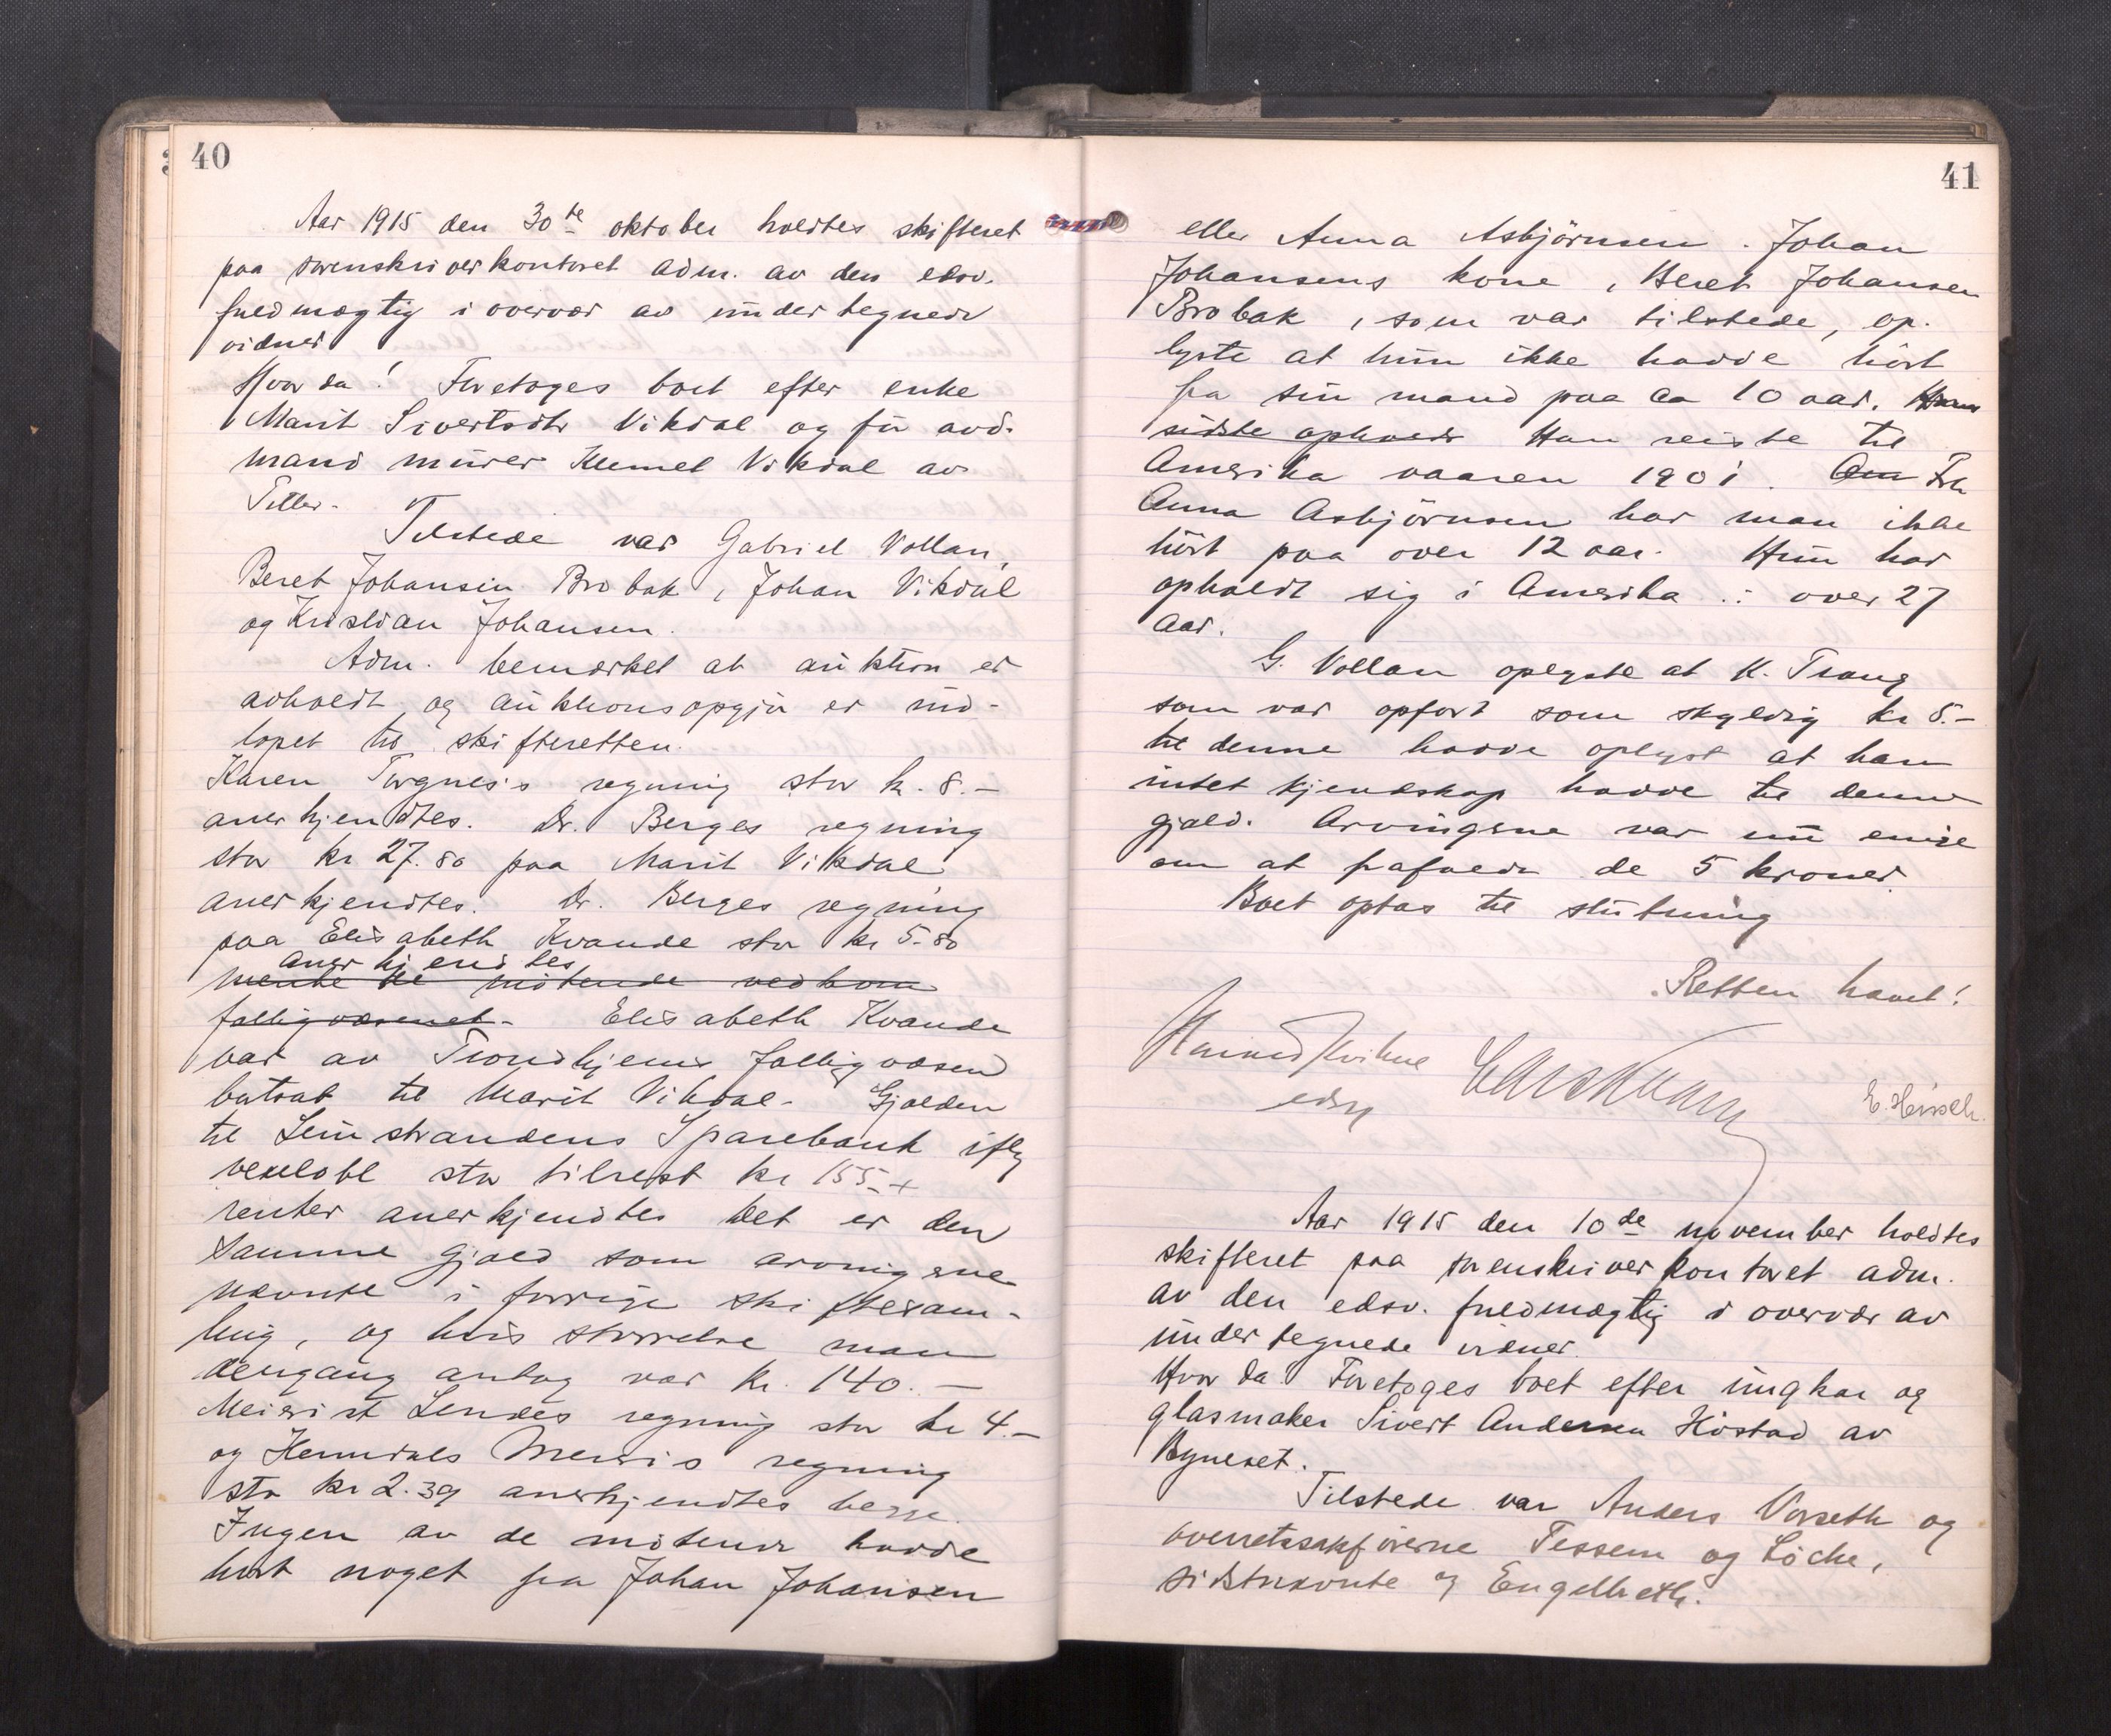 40
Aar 1915 den 30te oktober holdtes skifteret
paa sorenskriverkontoret adm. av den edsv.
fuldmægtig i overvær av undertegnede
vidner
Hvor da! Foretoges boet efter enke
Marit Sivertsdtr Vikdal og før avd.
mand murer Klemet Vikdal av
Tiller.
Tilstede var Gabriel Vollan,
Beret Johansen Brobak, Johan Vikdal
og Kristian Johansen.
Adm. bemerket at auktion er
avholdt og auktionsopgjør er ind-
løpet til skifteretten.
Karen regning stor kr. 8.-
anerkjendtes. Dr. Berges regning
stor kr 27.80 paa Marit Vikdal
anerkjendtes. Dr. Berges regning
paa Elisabeth Kvande stor kr 5.80
anerkjendtes
mente de møtende vedkom
fattigvæsenet. Elisabeth Kvande
var av Trondhjems fattigvæsen
bortsat til Marit Vikdal. Gjælden
til Leinstrandens Sparebank ifølg
vexelobl stor tilrest kr 155.- +
renter anerkjendtes det er den
samme gjæld som arvingene
nævnte i forrige skiftesam-
ling, og hvis størrelse man
dengang antog var kr. 140.-
Meieri st Lendes regning stor kr 4.-
og Hemdals Meieris regning
stor kr 2.39 anerkjendtes begge.
Ingen av de møtende hadde
hørt noget fra Johan Johansen
41
eller Anna Asbjörnsen. Johan
Johansens kone, Beret Johansen
Brobak, som var tilstede, op-
lyste at hun ikke hadde hørt
fra sin mand paa ca 10 aar. Hans
sidste ophold Han reiste til
Amerika vaaren 1901. Om Fra
Anna Asbjörnsen har man ikke
hørt paa over 12 aar. Hun har
opholdt sig i Amerika i over 27
aar.
G. Vollan oplyste at K. Trang
som var opført som skyldig kr 5.-
til denne hadde oplyst at han
intet kjendskap hadde til denne
gjæld. Arvingene var nu enige
om at frafalde de 5 kroner.
Boet optas til slutning
Retten hævet!
edsv
E. Hirsch.
Aar 1915 den 10de november holdtes
skifteret paa sorenskriverkontoret adm.
av den edsv. fuldmægtig i overvær av
undertegnede vidner.
Hvor da Foretoges boet efter ungkar og
glasmaker Sivert Andersen Høstad av
Byneset.
Tilstede var Anders Vorseth og
overretssakførerne Tessem og Löche,
sidstnævnte og Engelbreth.